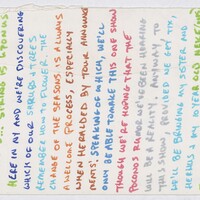 IS UPON US
HERE IN NY AND WE'RE DISCOVERING
WHICH OF OUR SHRUBS & TREES
REMEMBER HOW TO FLOWER. THE
CHANGE OF THE SEASONS IS ALWAYS
A WELCOME PROCESS, ESPECIALLY
WHEN HERALDED BY YOUR
SPEAKING OF WHICH, WE'LL
ONLY BE ABLE TO MAKE THIS ONE SHOW
THOUGH WE'RE HOPING THAT THE
POCONOS RUMOR WE'VE BEEN HEARING
WILL BE A REALITY. ANYWAY, TO
THIS SHOW
WE'LL BE BRINGING MY SISTER AND
& MY 10 YEAR